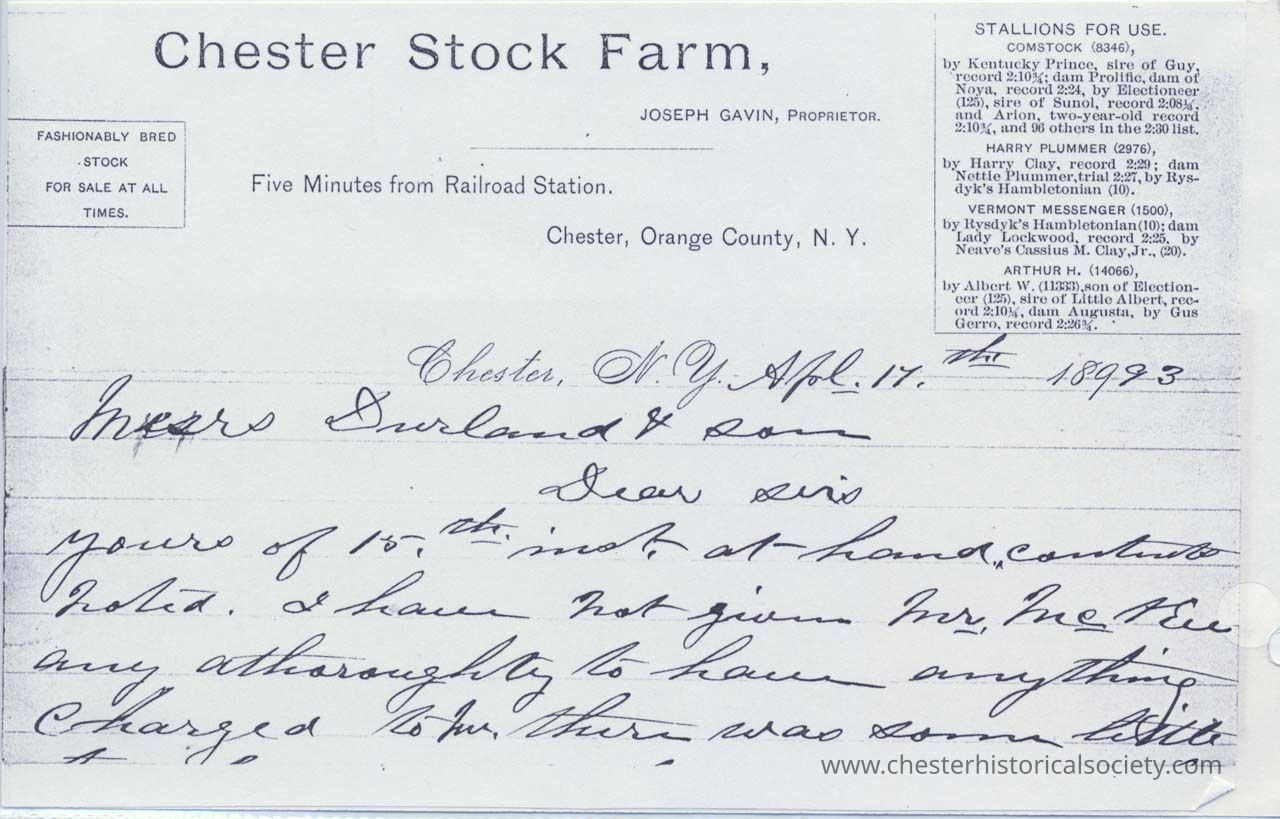 Chester Stock Farm,
JOSEPH GAVIN, PROPRIETOR.
FASHIONABLY BRED
STOCK
FOR SALE AT ALL
TIMES.
Five Minutes from Railroad Station.
Chester, Orange County, N. Y.
STALLIONS FOR USE.
COMSTOCK (8346),
by Kentucky Prince, sire of Guy,
record 2:10¾; dam Prolific, dam of
Noya, record 2:24, by Electioneer
(125), sire of Sunol, record 2:08¼,
and Arion, two-year-old record
2:10¾, and 96 others in the 2:30 list.
HARRY PLUMMER (2976),
by Harry Clay, record 2:29; dam
Nettie Plummer, trial 2:27, by Rys-
dyk's Hambletonian (10).
VERMONT MESSENGER (1500),
by Rysdyk's Hambletonian (10); dam
Lady Lockwood, record 2:25, by
Neave's Cassius M. Clay, Jr., (20).
ARTHUR H. (14066),
by Albert W. (11333), son of Election-
eer (125), sire of Little Albert, rec-
ord 2:10¼, dam Augusta, by Gus
Gerro, record 2:26¾.
Chester, N. Y. Apl. 17.th 18993
Messrs Durland & son
Dear sirs
yours of 15.th inst. at hand, contents
noted. I have not given Mr. Mc
any athoroughty to have anything
charged to me. there was some little
www.chesterhistoricalsociety.com